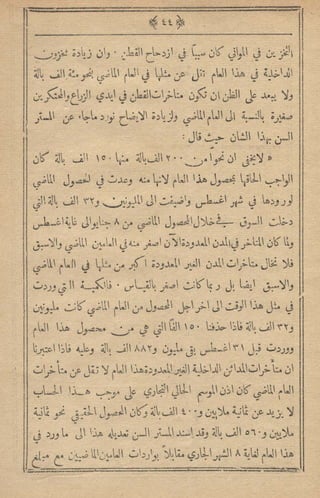 ﴿ ٤٤ ﴾
التخزين في المواني كان سبباً في ازدحام القطن . وان زيادة تخزون
الداخلية في هذا العام تقل عن مثلها في العام الماضي بنحو مئة الف بالة
ولا يبعد على الظن ان تكون متأخرات القطن في ايدي الزراع والمحتكرين
صغيرة بالنسبة الى العام الماضي ولزيادة الايضاح نورد ما جاء عن المستر
السن بهذا الشان حيث قال :
« لا يخفى ان نحواً من ٢٠٠ الف بالة منها ١٥٠ الف بالة كان
الواجب الحاقها بمحصول هذا العام لانها منه وعدت في المحصول الماضي
لورودها في شهر اغسطس واضيفت الى المليونين و٣٢ الف بالة التي
دخلت السوق في خلال المحصول الماضي من ٨ جنايو الى غاية اغسطس
ولما كان المتأخر في المدن المعدودة الآن اصغر منه في العامين الماضي والاسبق
فلا نخال متاخرات المدن الغير المعدودة اكبر من مثلها في العام الماضي
والاسبق ايضا بل ربما كانت اصغر بالقياس . فالكمية التي وردت
في مثل هذا الوقت الى اخر اجل المحصول من العام الماضي كانت مليونين
و٣٢ الف بالة فاذا حذفنا ١٥٠ الفاً التي هي من محصول هذا العام
ووردت قبل ٣١ اغسطس بقي مليون و٨٨٢ الف بالة وعليه فاذا اعتبرنا
ان متأخرات المدائن الداخلية الغير المعدودة هذا العام لا تقل عن متأخرات
العام الماضي كان اذن الموسم الحالي التجاري على موجب هذا الحساب
لا يزيد عن ثمانية ملايين و٤٠٠ الف بالة وكان المحصول الحقيقي نحو ثمانية
ملايين و٥٦٠ الف بالة وقد اسند المستر السن تعديله هذا الى ما ورد في
هذا العام لغاية ٨ الشهر الجاري مقابلاً بواردات العامين الماضيين مع مبلغ